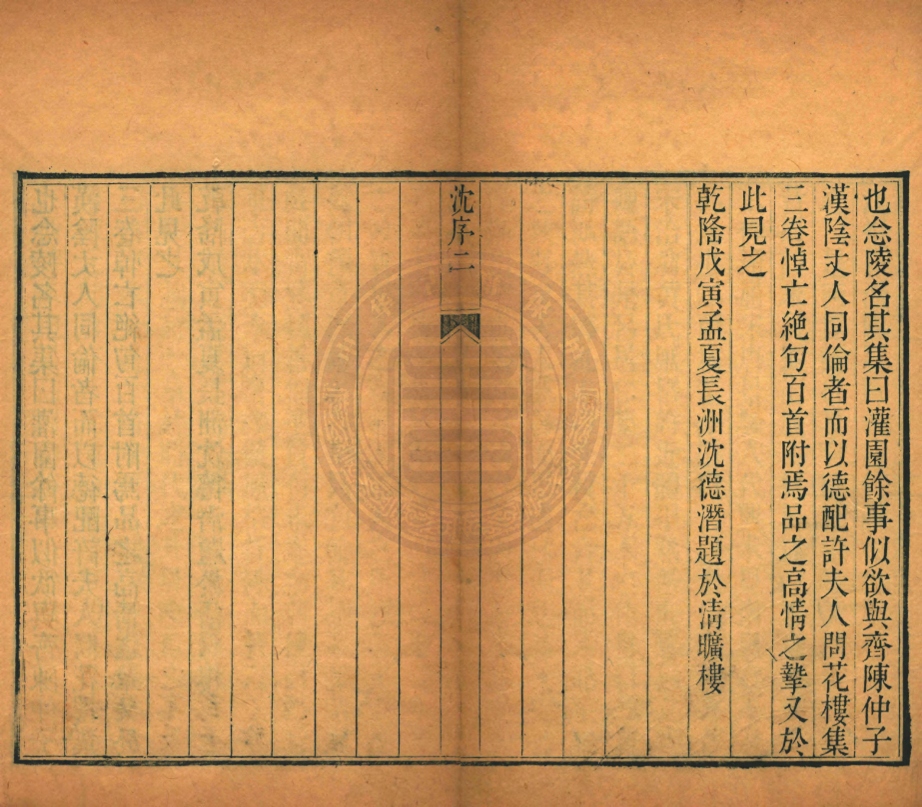 也念陵名其集曰灌園餘事似欲與齊陳仲子
漢陰丈人同倫者而以德配許夫人問花樓集
三卷悼亡絶句百首附焉品之高情之摯又於
此見之
乾隆戊寅孟夏長洲沈德潛題於淸曠樓
沈序二